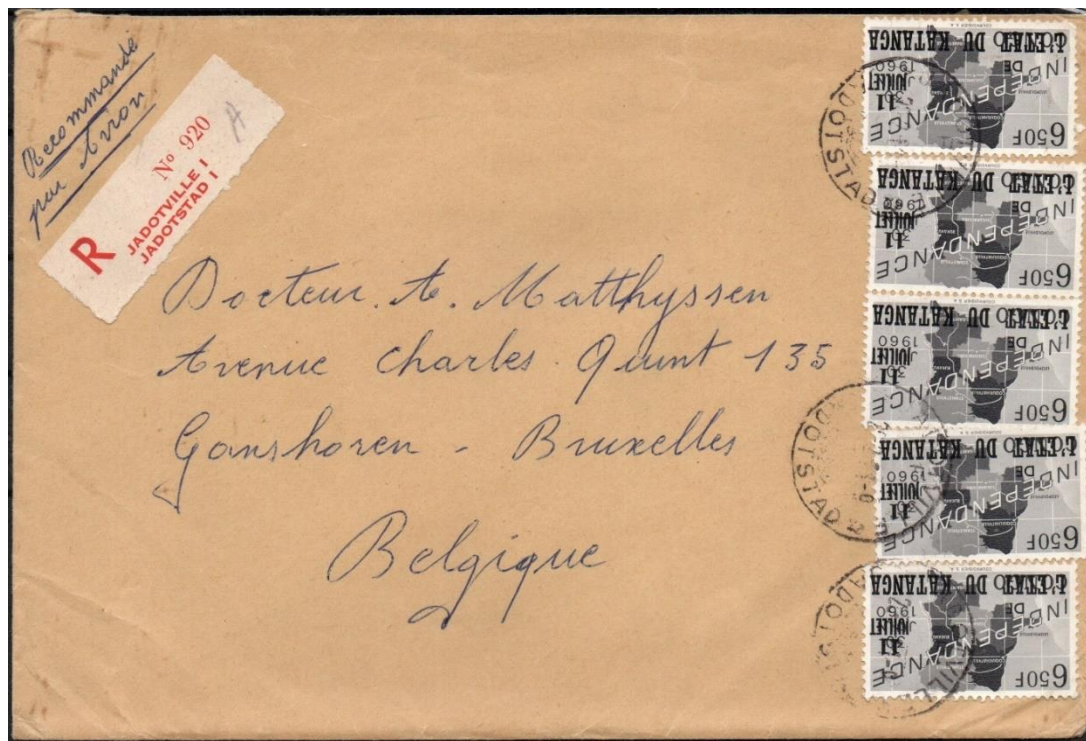 Recommandé
par Avion
R
Nº 920
A
JADOTVILLE I
JADOTSTAD I
Docteur. A. Matthyssen
Avenue Charles Quint 135
Ganshoren - Bruxelles
Belgique
6.50F
INDEPENDANCE
11
JUILLET
DE
1960
L'ETAT DU KATANGA
JADOTSTAD
6.50F
INDEPENDANCE
11
JUILLET
DE
1960
L'ETAT DU KATANGA
6.50F
INDEPENDANCE
11
JUILLET
DE
L'ETAT DU KATANGA
JADOTSTAD
6.50F
INDEPENDANCE
11
JUILLET
DE
1960
L'ETAT DU KATANGA
6.50F
INDEPENDANCE
11
JUILLET
DE
1960
L'ETAT DU KATANGA